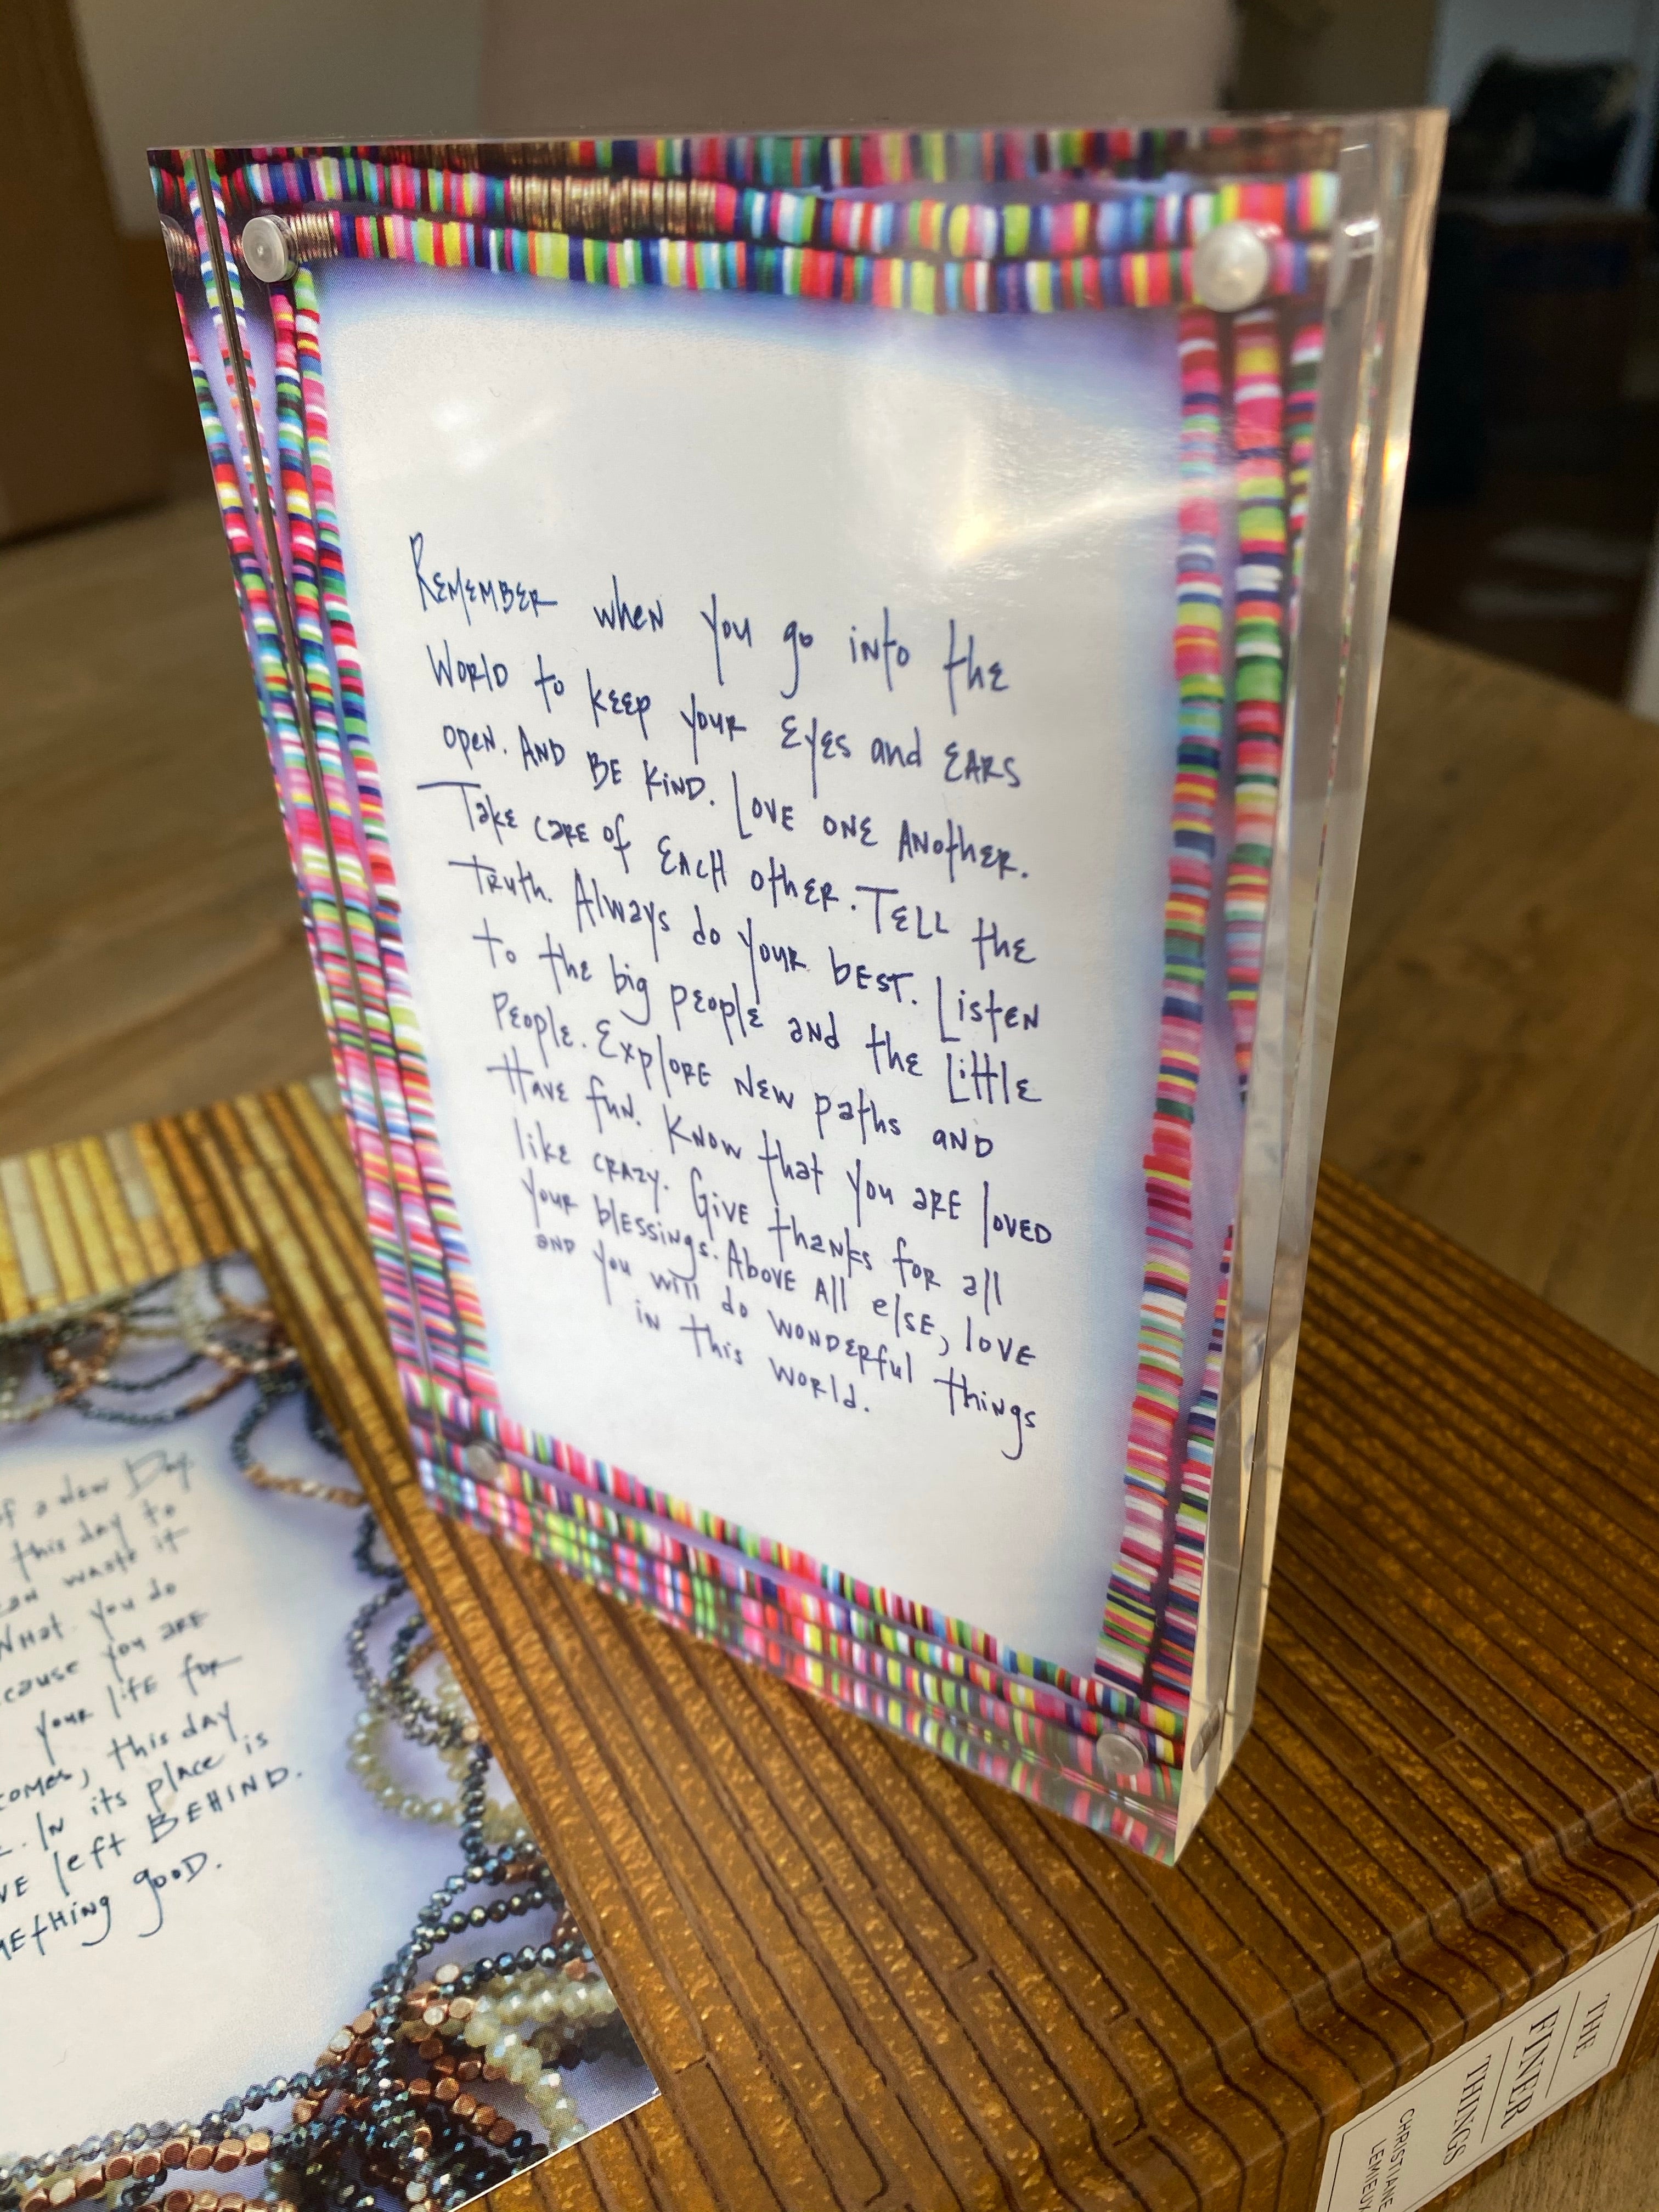 REMEMBER when you go into the
World to keep your Eyes and EARS
open. AND BE KIND. Love one Another.
Take care of EACH other. TELL the
truth. Always do your best. Listen
to the big people and the little
People. Explore new paths and
Have fun. Know that you are loved
like crazy. Give thanks for all
your blessings. Above All else, love
and you will do wonderful things
in this world.
of a New Day
this day to
can waste it
What you do
cause you are
your life for
comes, this day
In its place is
left BEHIND.
good.
THE
FINER
THINGS
CHRISTIANE
LEMIEUX